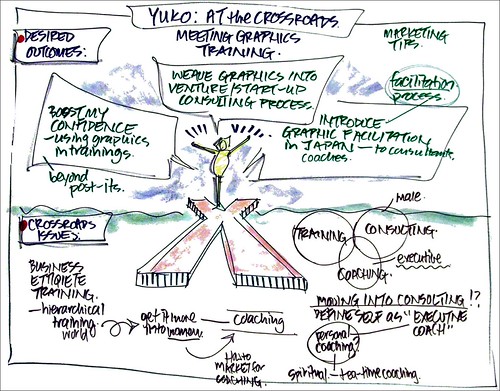 YUKO: AT the CROSSROADS.
MEETING GRAPHICS
TRAINING.
MARKETING
TIPS.
DESIRED
OUTCOMES:
WEAVE GRAPHICS INTO
VENTURE/START-UP
CONSULTING PROCESS.
facilitation
process.
BOOST MY
CONFIDENCE
- using graphics
in trainings.
beyond
post-its.
INTRODUCE
GRAPHIC FACILITATION
in JAPAN — to consultants
coaches.
CROSSROADS
ISSUES:
male
TRAINING
CONSULTING
COACHING
executive
BUSINESS
ETIQUETTE
TRAINING.
- hierarchical
training
world
get it more
into
coaching
How to
MARKET for
COACHING.
MOVING INTO CONSULTING !?
DEFINE SELF AS "EXECUTIVE
COACH"
personal
coaching?
spiritual - tea-time coaching.